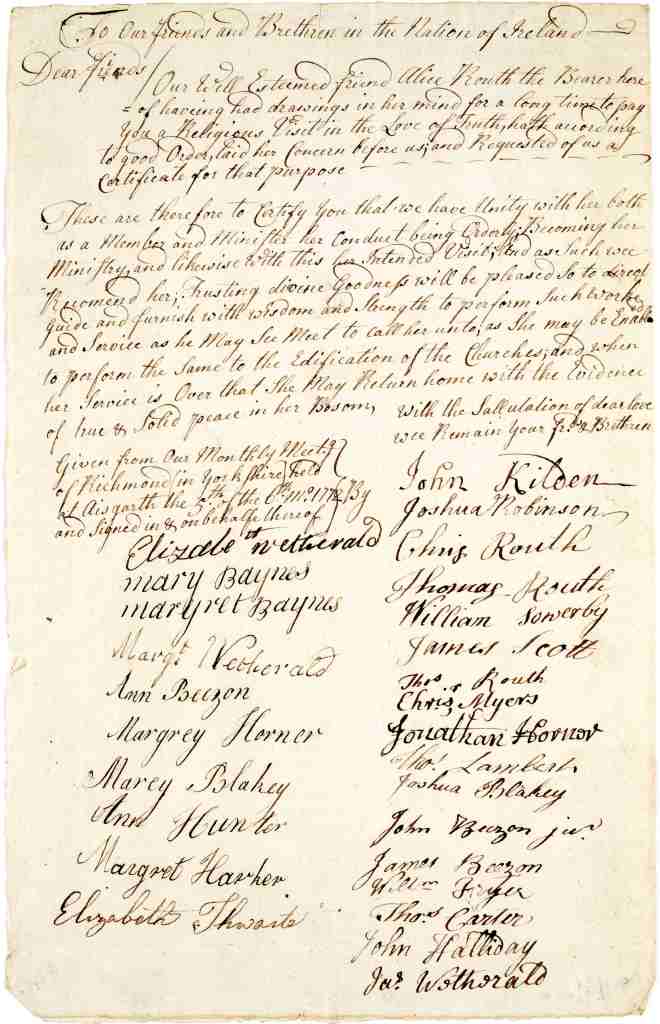 To Our friends and Brethren in the Nation of Ireland
Dear friends/
Our Well Esteemed friend Alice Routh the Bearer here
=of having had drawings in her mind for a long time to pay
You a Religious Visit in the Love of Truth, hath according
to good Order, laid her Concern before us; and Requested of us a
Certificate for that purpose
These are therefore to Certify You that we have Unity with her both
as a Member and Minister her Conduct being Orderly, Becoming her
Ministry, and likewise with this her Intended Visit; And as Such wee
Recomend her; Trusting divine Goodness will be pleased so to direct
guide and furnish with wisdom and strength to perform Such Worke
and Service as he May See Meet to call her unto, as She may be Enabled
to perform the Same to the Edification of the Churches; and when
her Service is Over that She May Return home with the Evidence
of true & Solid peace in her Bosom,
with the Sallutation of dear love
wee Remain Your frds & Brethren
Given from Our Monthly Meetg
of Richmond in Yorkshire, held
at Aisgarth the 5th of the mo By
and Signed in & on behalfe thereof
Elizabeth Wetherald
mary Baynes
margret Baynes
Margt Wetherald
Ann Beezon
Margrey Horner
Marey Blakey
Ann Hunter
Margret Harker
Elizabeth Thwaite
John Kilden
Joshua Robinson
Chris Routh
Thomas Routh
William Sowerby
James Scott
Thos Routh
Chrisr Myers
Jonathan Hornor
Thos Lambert
Joshua Blakey
John Beezon junr
James Beezon
Willm
Thos Carter
John Halliday
Jas Wetherald